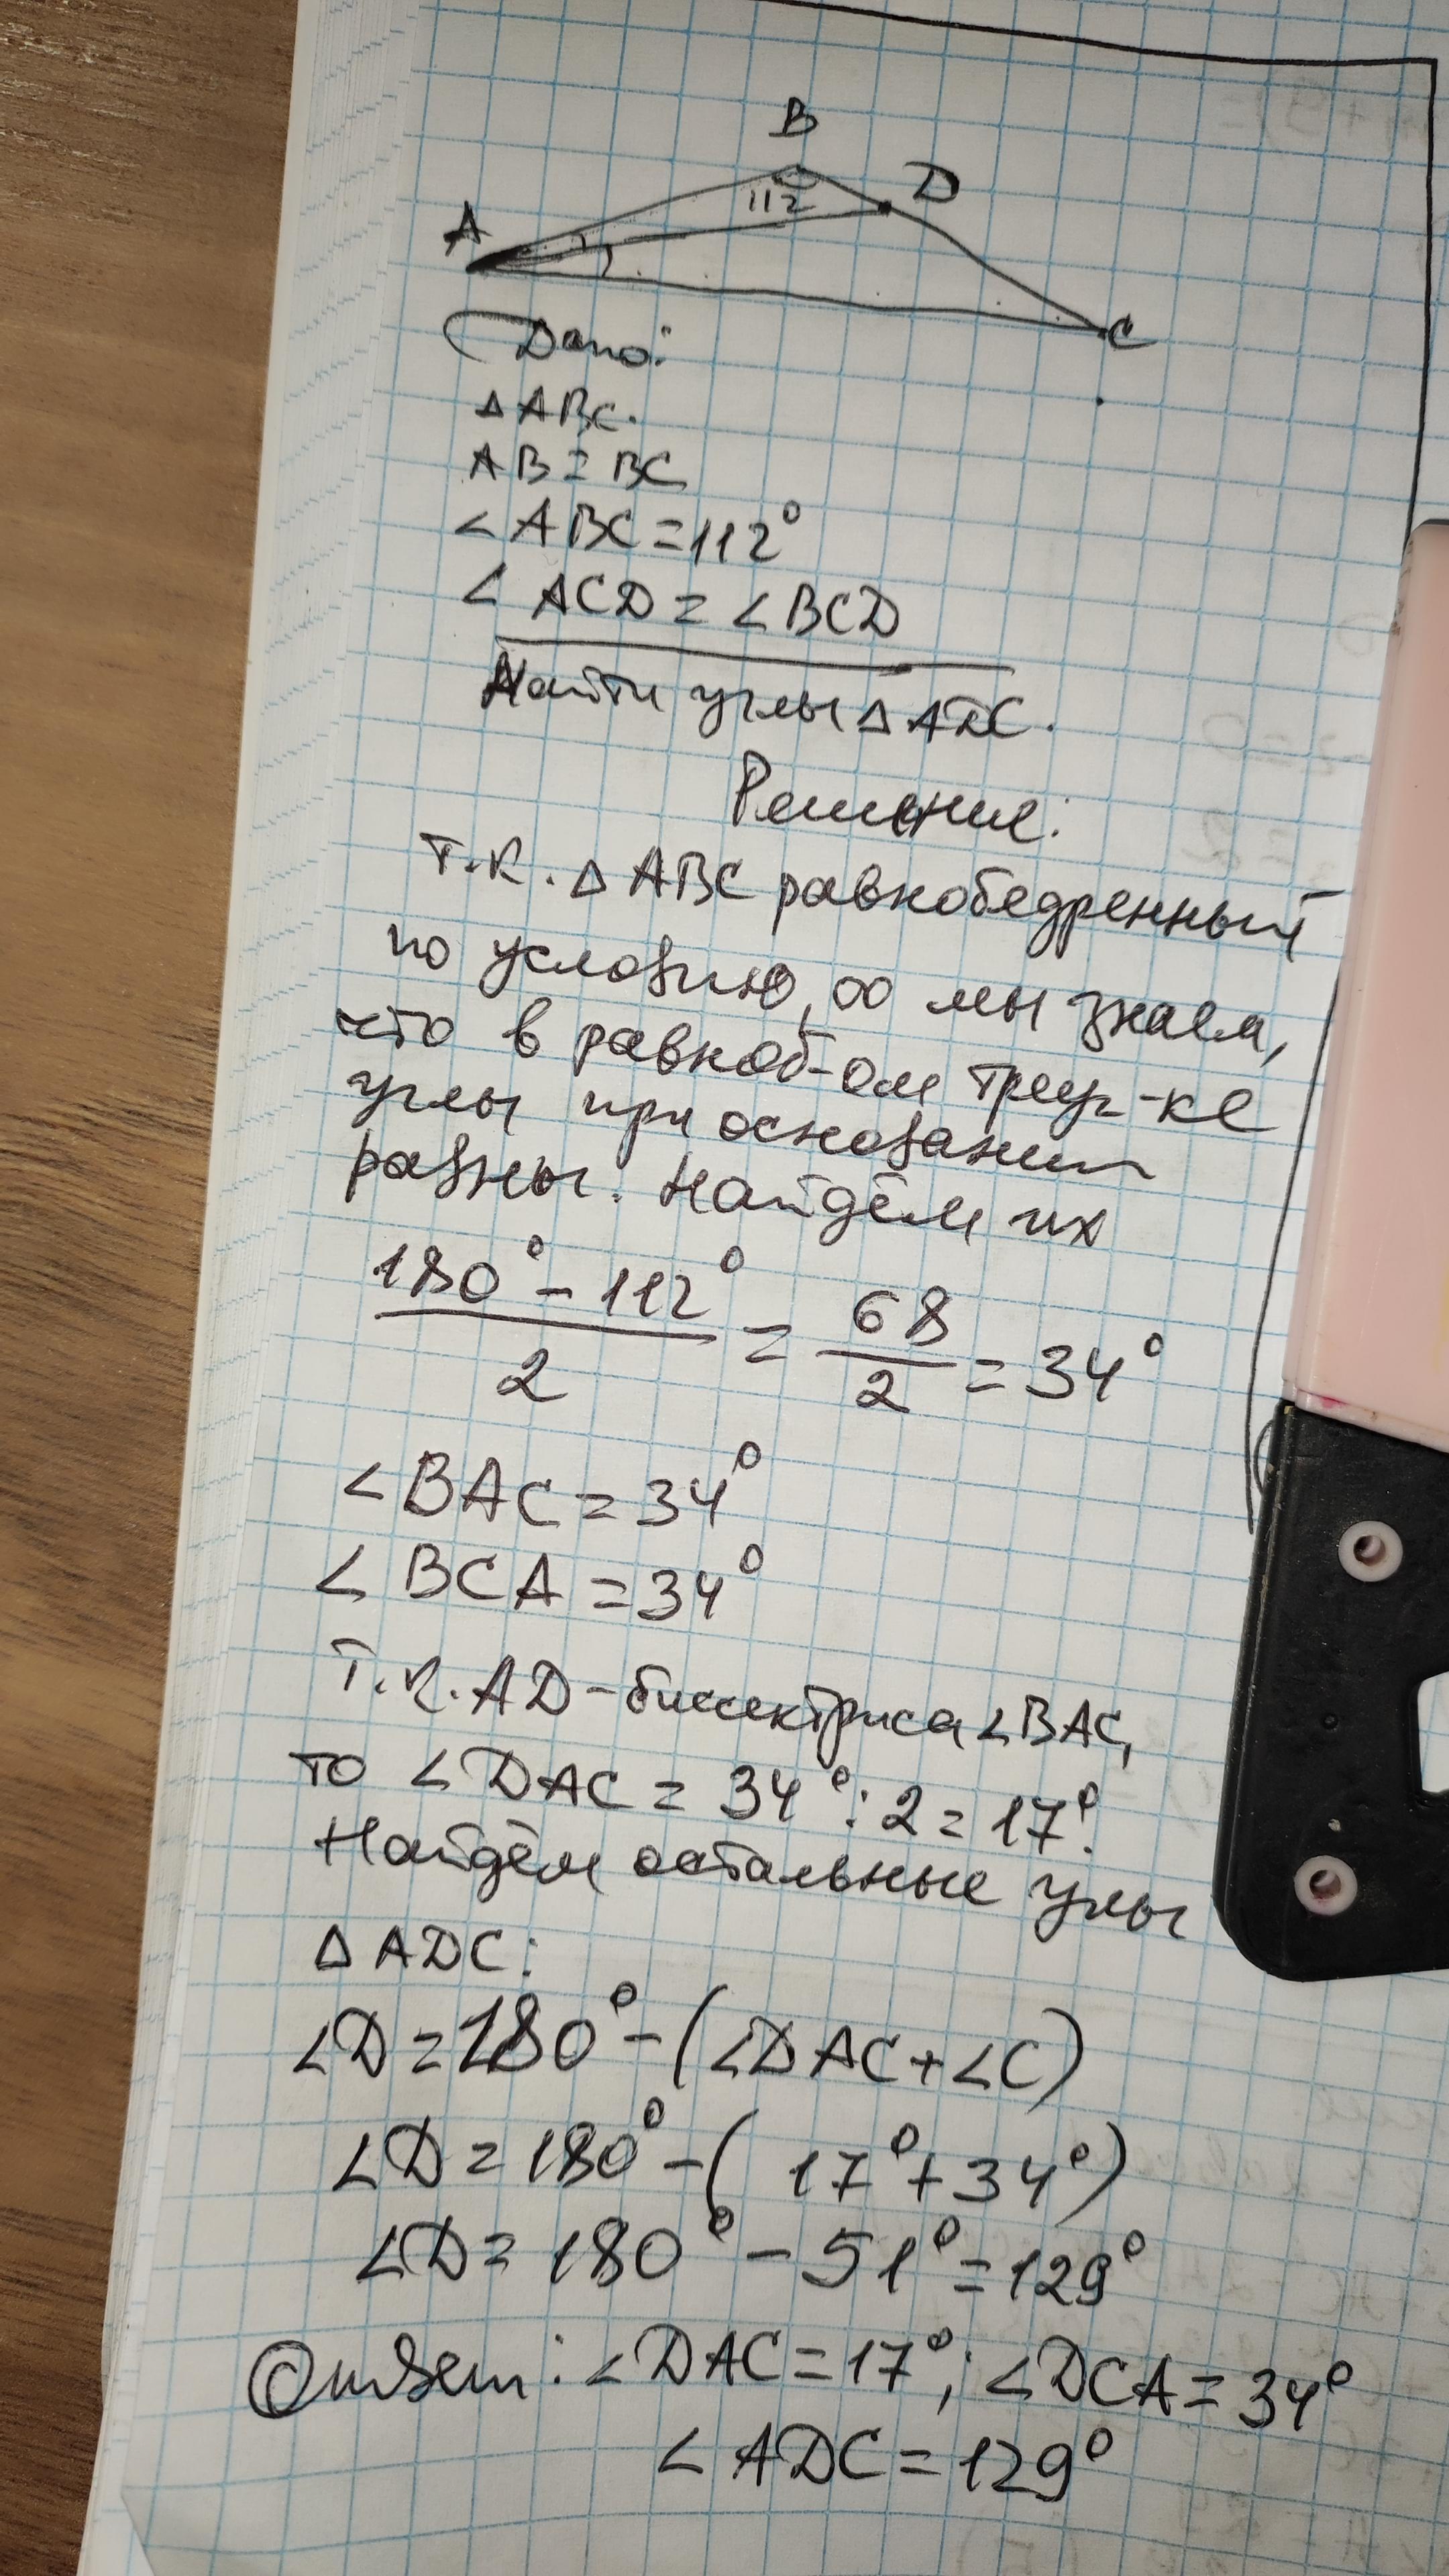 B
D
112
A
C
Дано:
△ABC.
AB = BC
∠ABC = 112°
∠ACD = ∠BCD
Найти углы △ADC.
Решение:
Т.к. △ABC равнобедренный
по условию, мы знаем,
что в равноб-ом треуг-ке
углы при основании
равны. Найдём их
(180° - 112°)/2 = 68/2 = 34°
∠BAC = 34°
∠BCA = 34°
Т.к. AD - биссектриса ∠BAC,
то ∠DAC = 34° : 2 = 17°.
Найдём остальные углы
△ADC:
∠D = 180° - (∠DAC + ∠C)
∠D = 180° - (17° + 34°)
∠D = 180° - 51° = 129°
Ответ: ∠DAC = 17°; ∠DCA = 34°
∠ADC = 129°